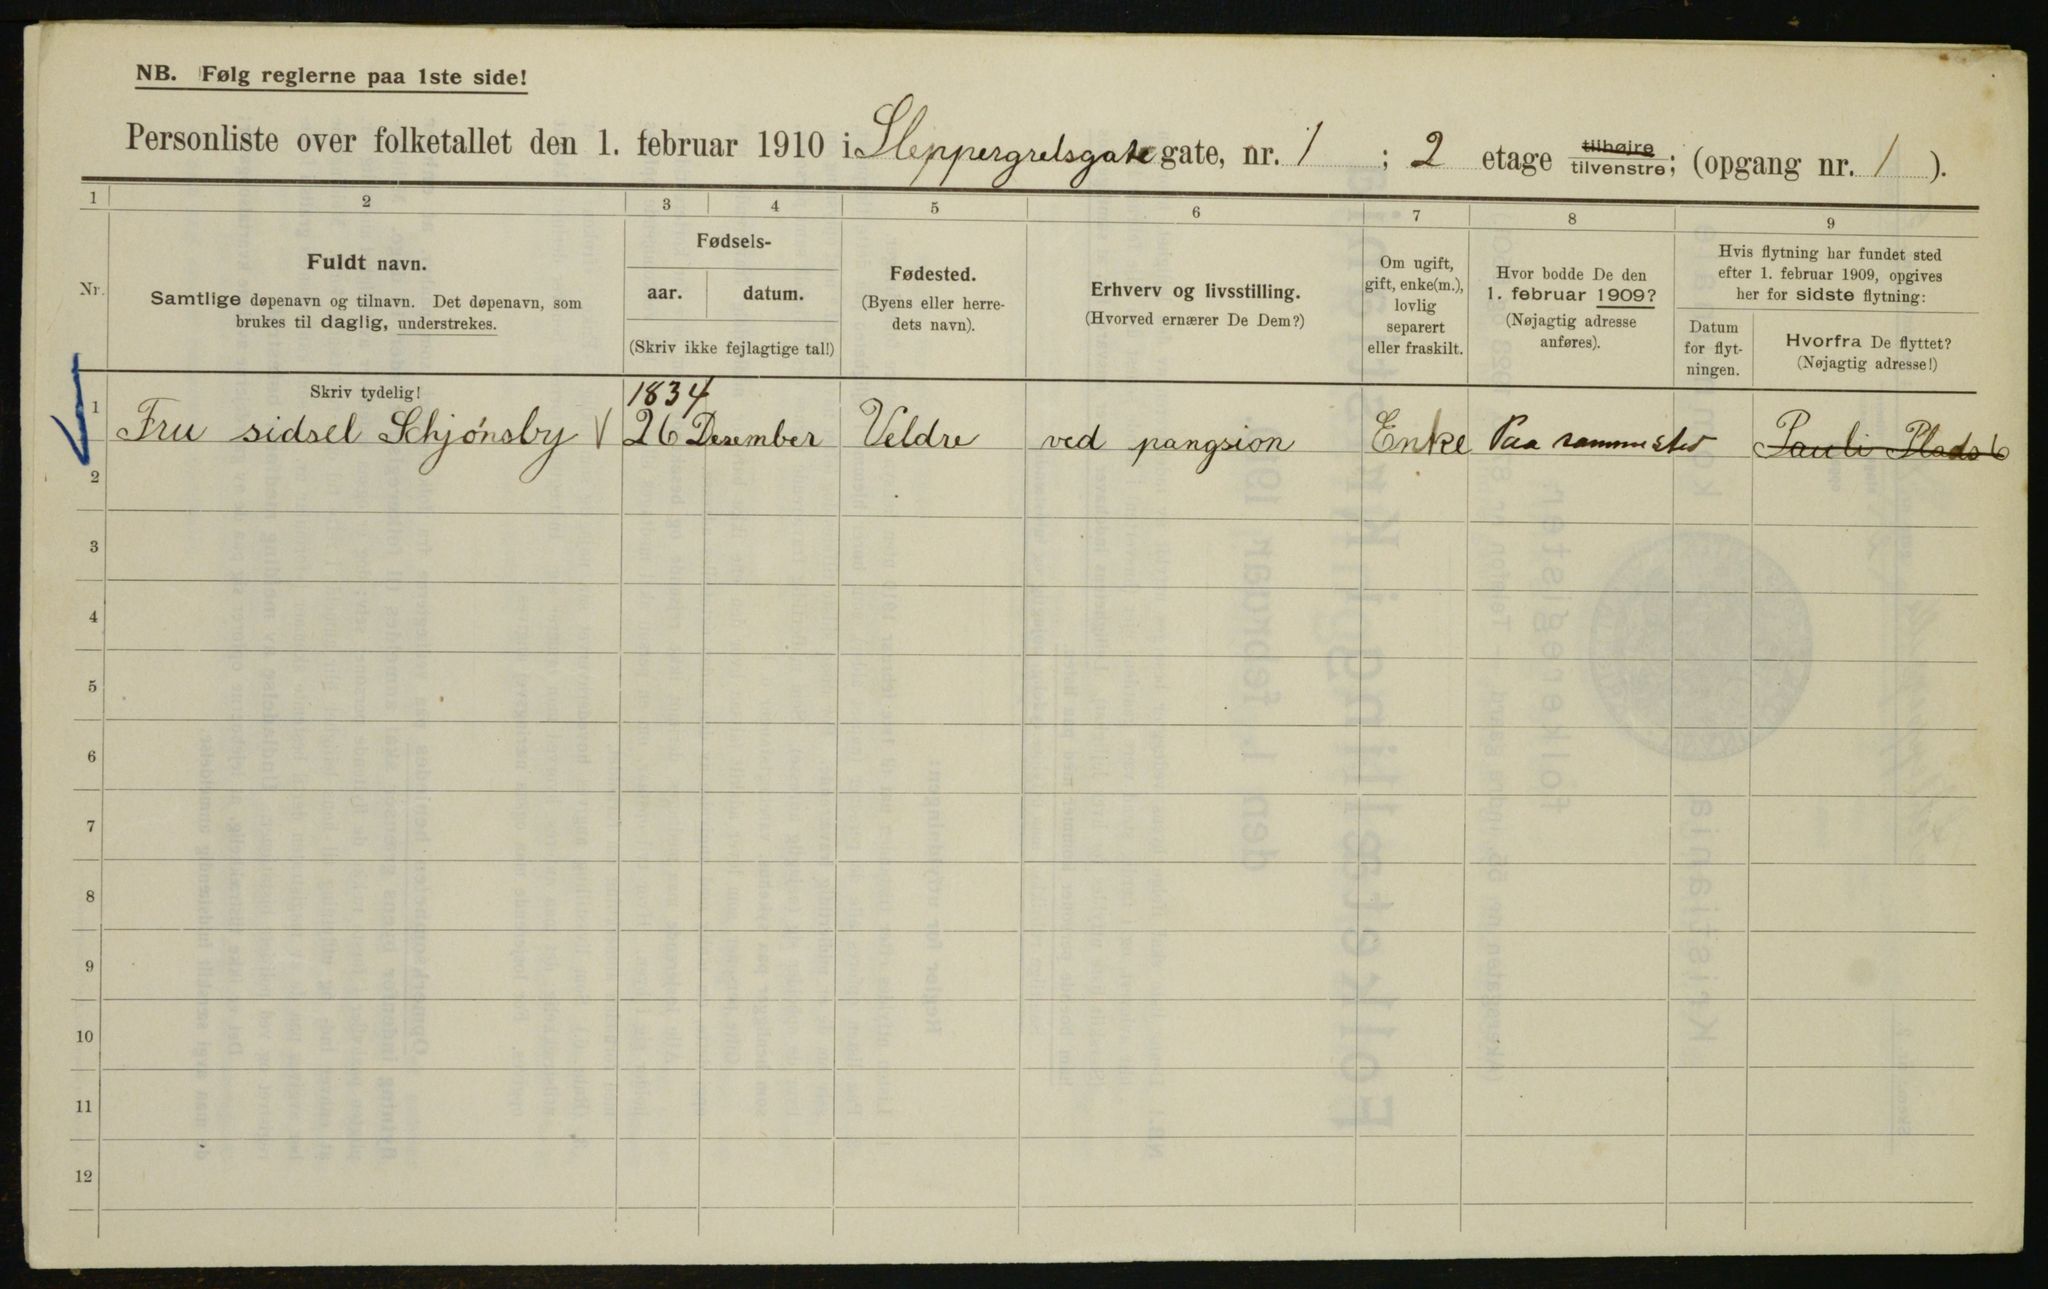 NB. Følg reglerne paa 1ste side!
Personliste over folketallet den 1. februar 1910 i Sleppergrelsgate gate, nr. 1 ; 2 etage tilhøire tilvenstre; (opgang nr. 1 ).
1 2 3 4 5 6 7 8 9
Nr.
Fuldt navn.
Samtlige døpenavn og tilnavn. Det døpenavn, som
brukes til daglig, understrekes.
Fødsels-
aar. datum.
(Skriv ikke fejlagtige tal!)
Fødested.
(Byens eller herre-
dets navn).
Erhverv og livsstilling.
(Hvorved ernærer De Dem?)
Om ugift,
gift, enke(m.),
lovlig
separert
eller fraskilt.
Hvor bodde De den
1. februar 1909?
(Nøjagtig adresse
anføres).
Hvis flytning har fundet sted
efter 1. februar 1909, opgives
her for sidste flytning:
Datum
for flyt-
ningen.
Hvorfra De flyttet?
(Nøjagtig adresse!)
Skriv tydelig!
1834
1 Fru sidsel Schjønsby 26 Desember Veldre ved pangsion Enke Paa sammested Pauli Plads 6
2
3
4
5
6
7
8
9
10
11
12